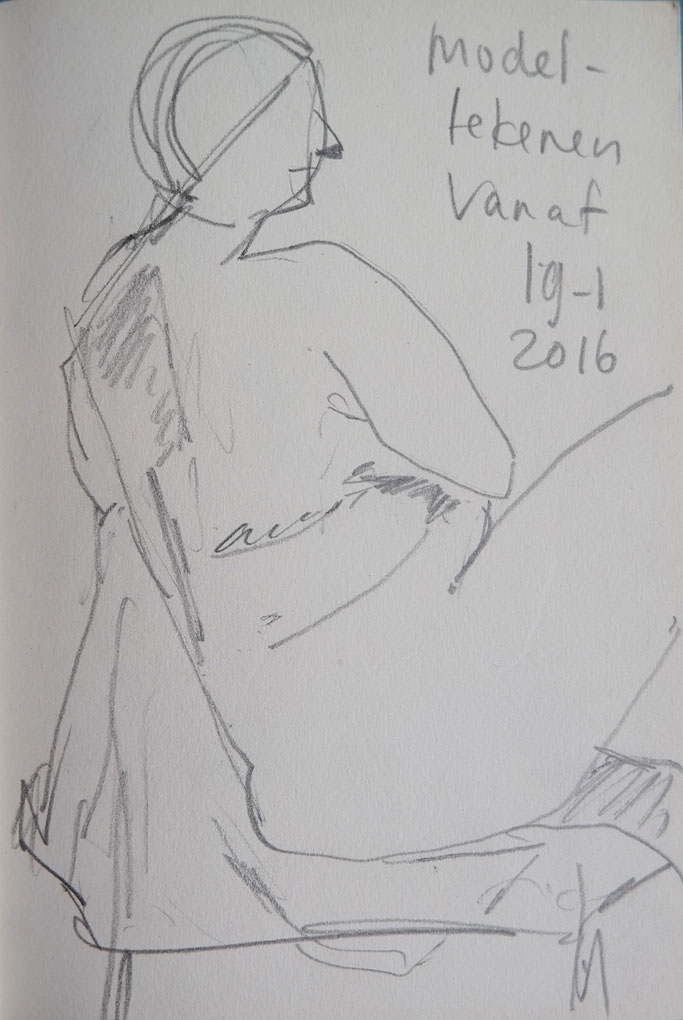 Model-
tekenen
vanaf
19-1
2016